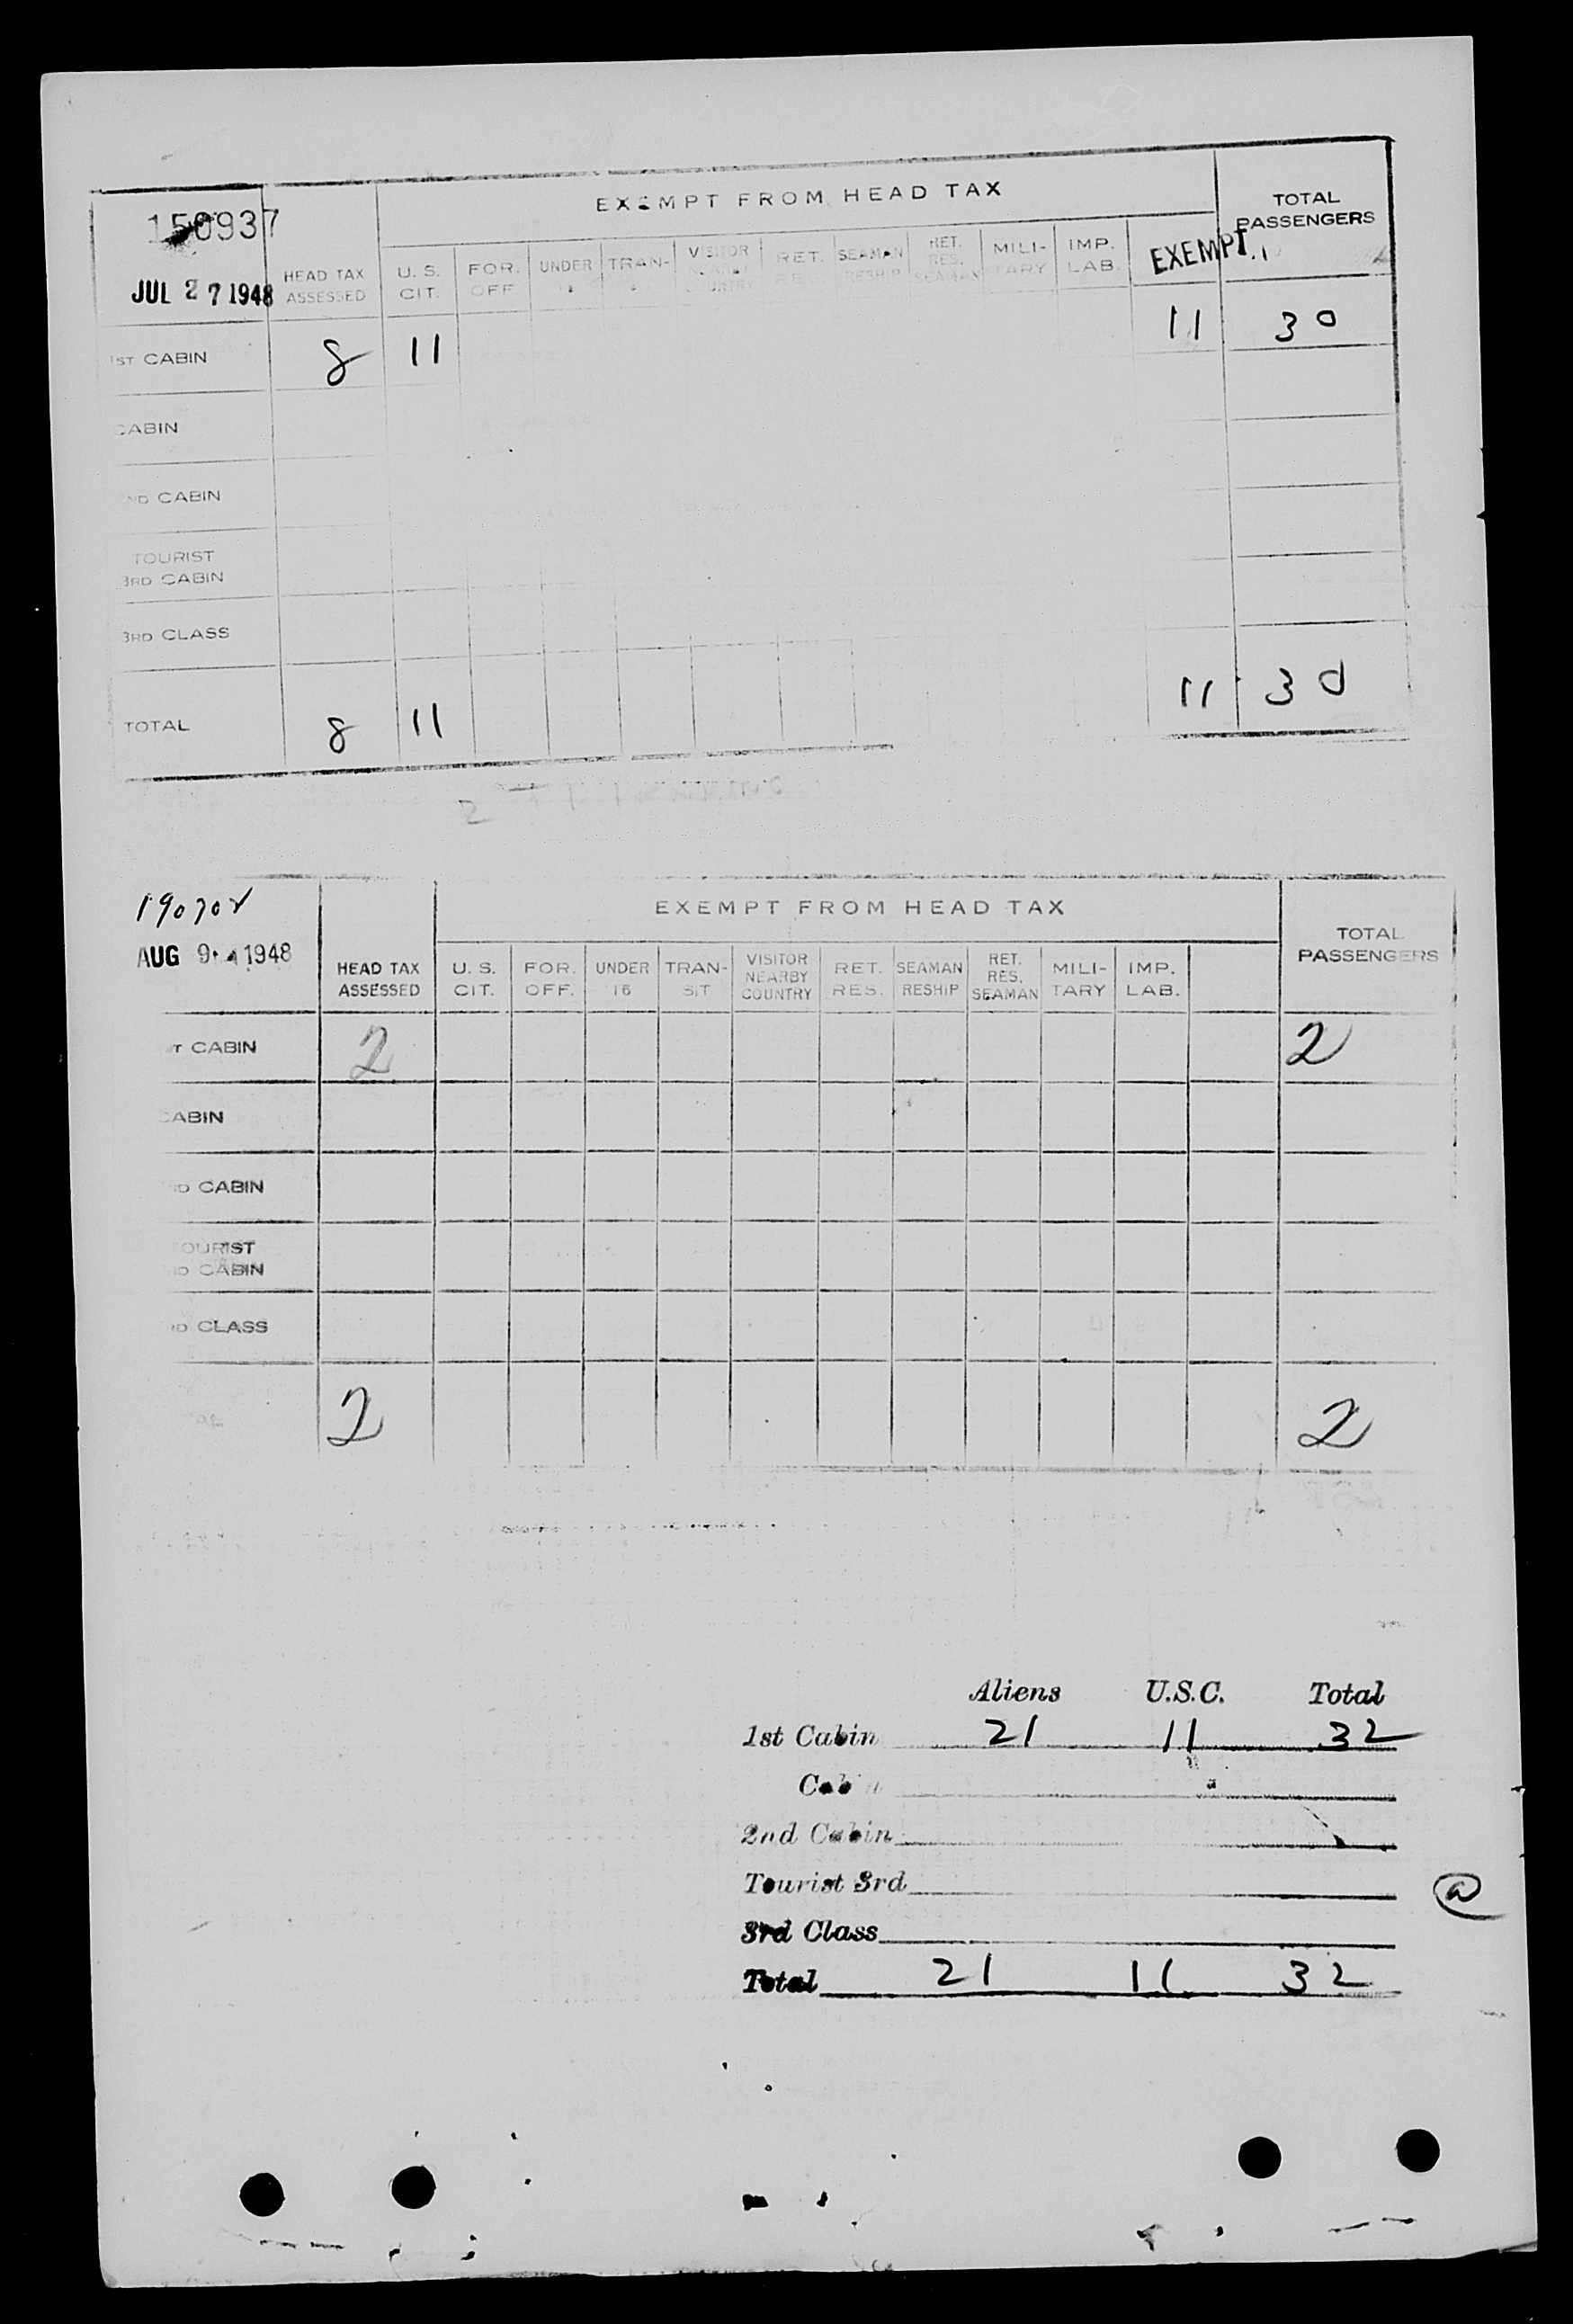 150937
JUL 27 1948
HEAD TAX ASSESSED
EXEMPT FROM HEAD TAX
TOTAL PASSENGERS
U. S. CIT.
FOR. OFF.
UNDER
TRAN-
VISITOR COUNTRY
RET. RES.
SEAMAN RESHIP
RET. RES. SEAMAN
MILI- TARY
IMP. LAB.
EXEMPT.
1ST CABIN 8 11 11 30
CABIN
ND CABIN
TOURIST
3RD CABIN
3RD CLASS
TOTAL 8 11 11 30
190702
AUG 9 1948
HEAD TAX ASSESSED
EXEMPT FROM HEAD TAX
TOTAL PASSENGERS
U. S. CIT.
FOR. OFF.
UNDER 16
TRAN- SIT
VISITOR NEARBY COUNTRY
RET. RES.
SEAMAN RESHIP
RET. RES. SEAMAN
MILI- TARY
IMP. LAB.
T CABIN 2 2
CABIN
D CABIN
OURIST
D CABIN
D CLASS
2 2
Aliens U.S.C. Total
1st Cabin 21 11 32
Cabin
2nd Cabin
Tourist 3rd
3rd Class
Total 21 11 32